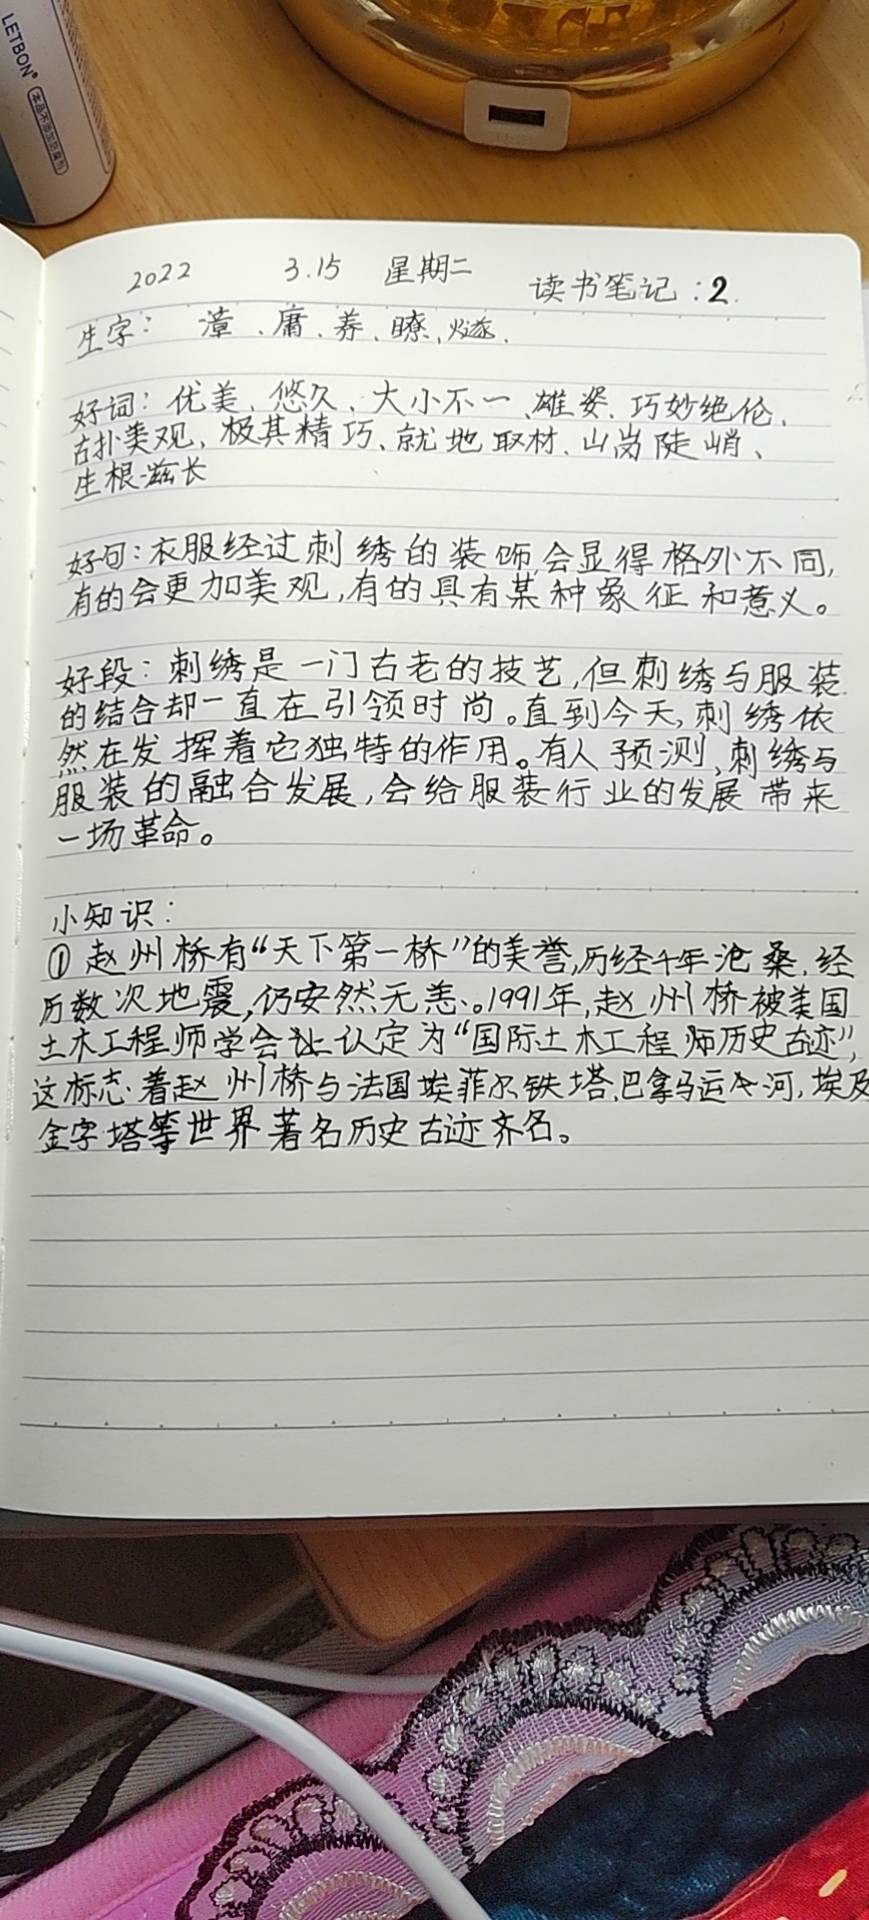 LETBON®
2022 3.15 星期二 读书笔记：2.
生字： 漳、庸、荞、瞭、燧.
好词：优美、悠久、大小不一、雄姿、巧妙绝伦、
古扑美观、极其精巧、就地取材、山岗陡峭、
生根滋长
好句：衣服经过刺绣的装饰,会显得格外不同,
有的会更加美观,有的具有某种象征和意义。
好段：刺绣是一门古老的技艺,但刺绣与服装
的结合却一直在引领时尚。直到今天,刺绣依
然在发挥着它独特的作用。有人预测,刺绣与
服装的融合发展,会给服装行业的发展带来
一场革命。
小知识：
① 赵州桥有“天下第一桥”的美誉,历经千年沧桑,经
历数次地震,仍安然无恙。1991年,赵州桥被美国
土木工程师学会让认定为“国际土木工程师历史古迹”,
这标志着赵州桥与法国埃菲尔铁塔、巴拿马运河,埃及
金字塔等世界著名历史古迹齐名。